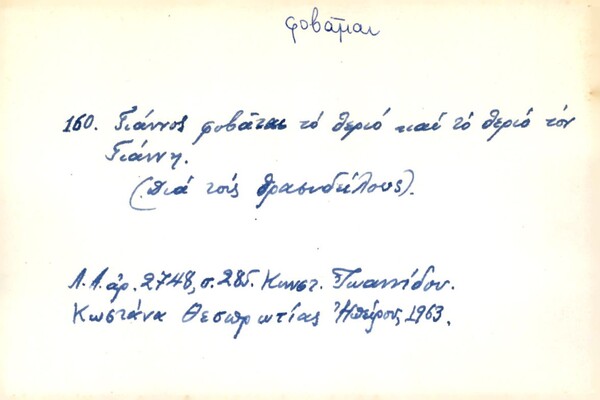 φοβᾶμαι
160. Γιάννος φοβᾶται τό θεριό καί τό θεριό τόν
Γιάννη.
(Διά τούς θρασυδείλους).
Λ.Α. ἀρ. 2748, σ. 285. Κωνστ. Ἰωαννίδου.
Κωστάνα Θεσπρωτίας Ἠπείρου, 1963.